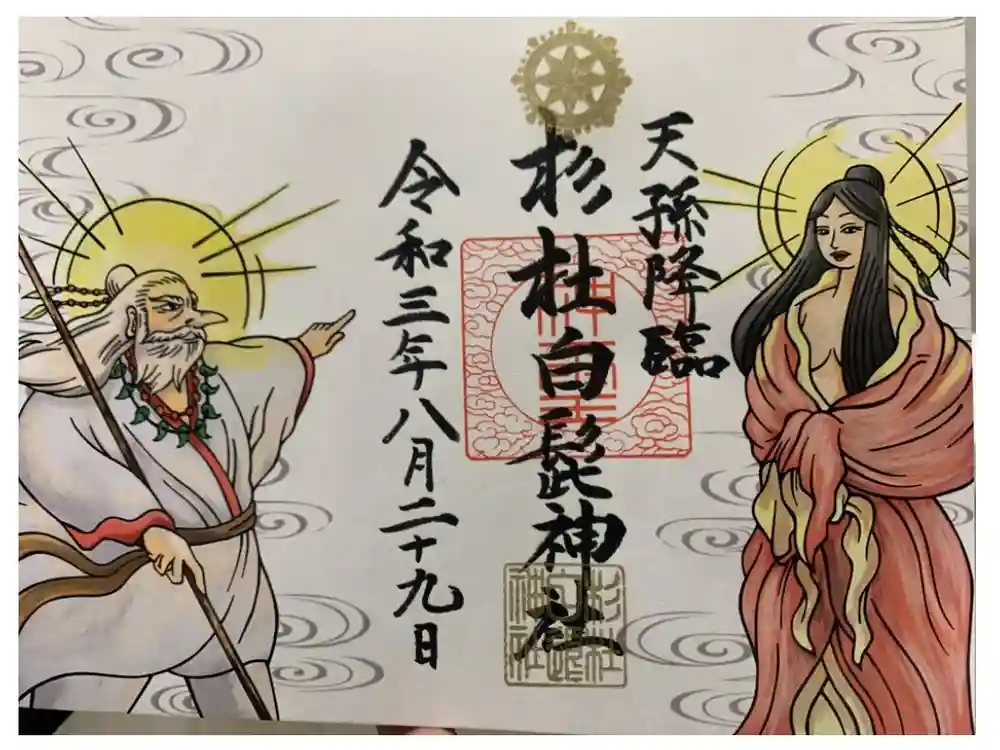 天孫降臨
杉杜白髭神社
令和三年八月二十九日
杉杜
白髭
神社